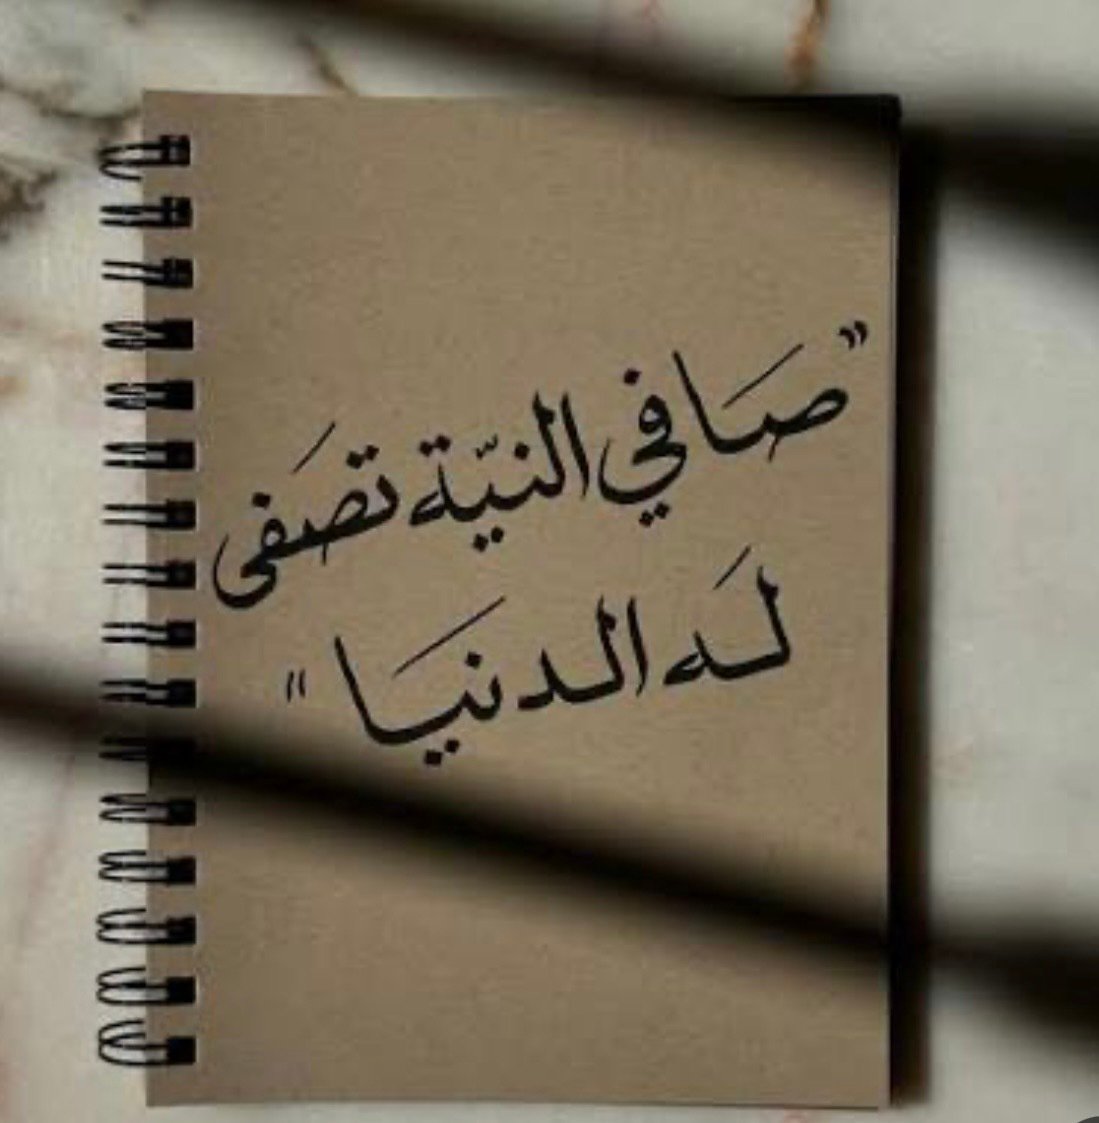 ”صَافي النيّة تصَفى
لَه الدنيَا "